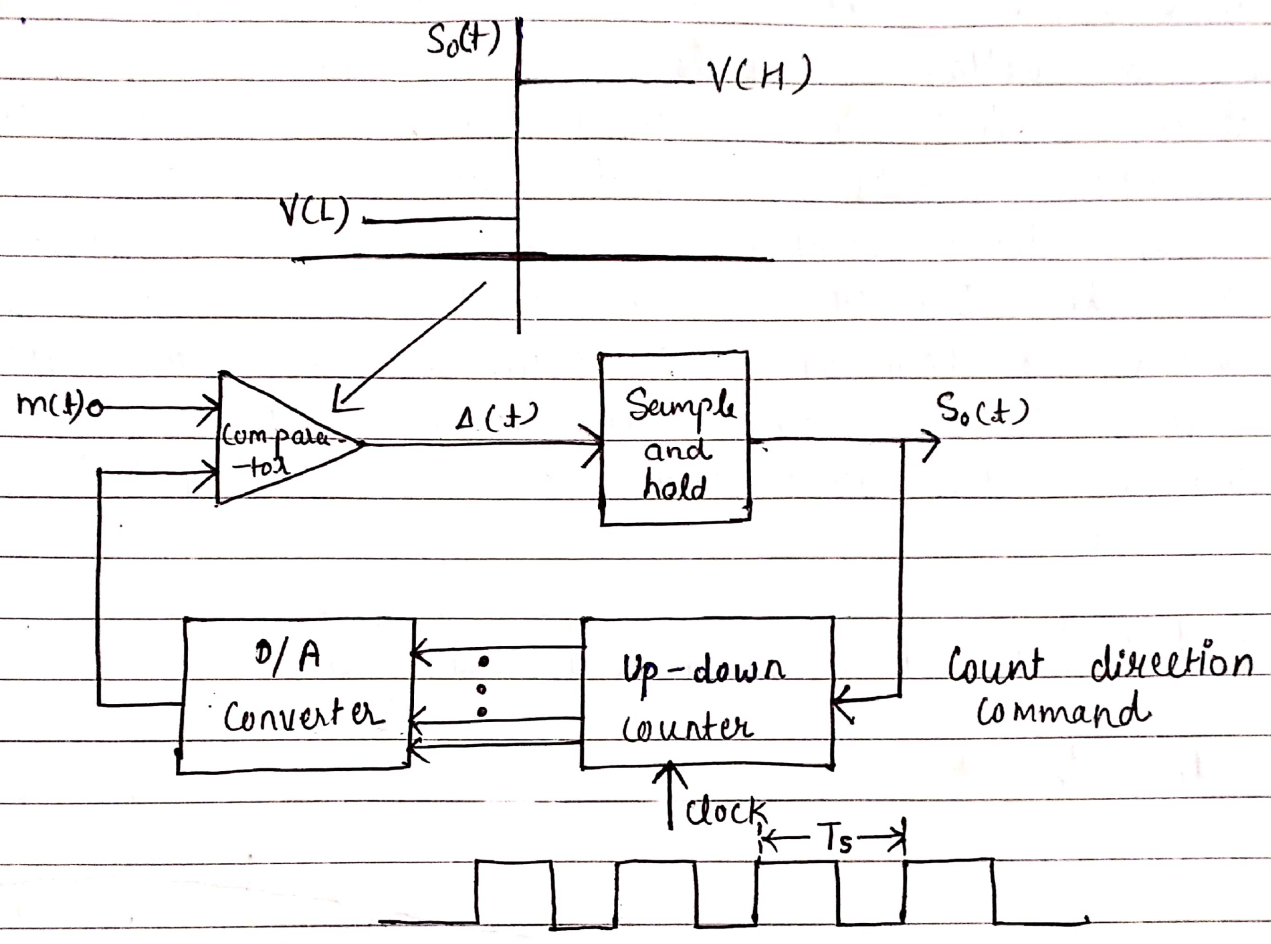 S₀(t)
V(H)
V(L)
m(t)
Compara-
-tor
Δ(t)
Sample
and
hold
S₀(t)
D/A
Converter
Up-down
counter
Count direction
command
clock
Ts